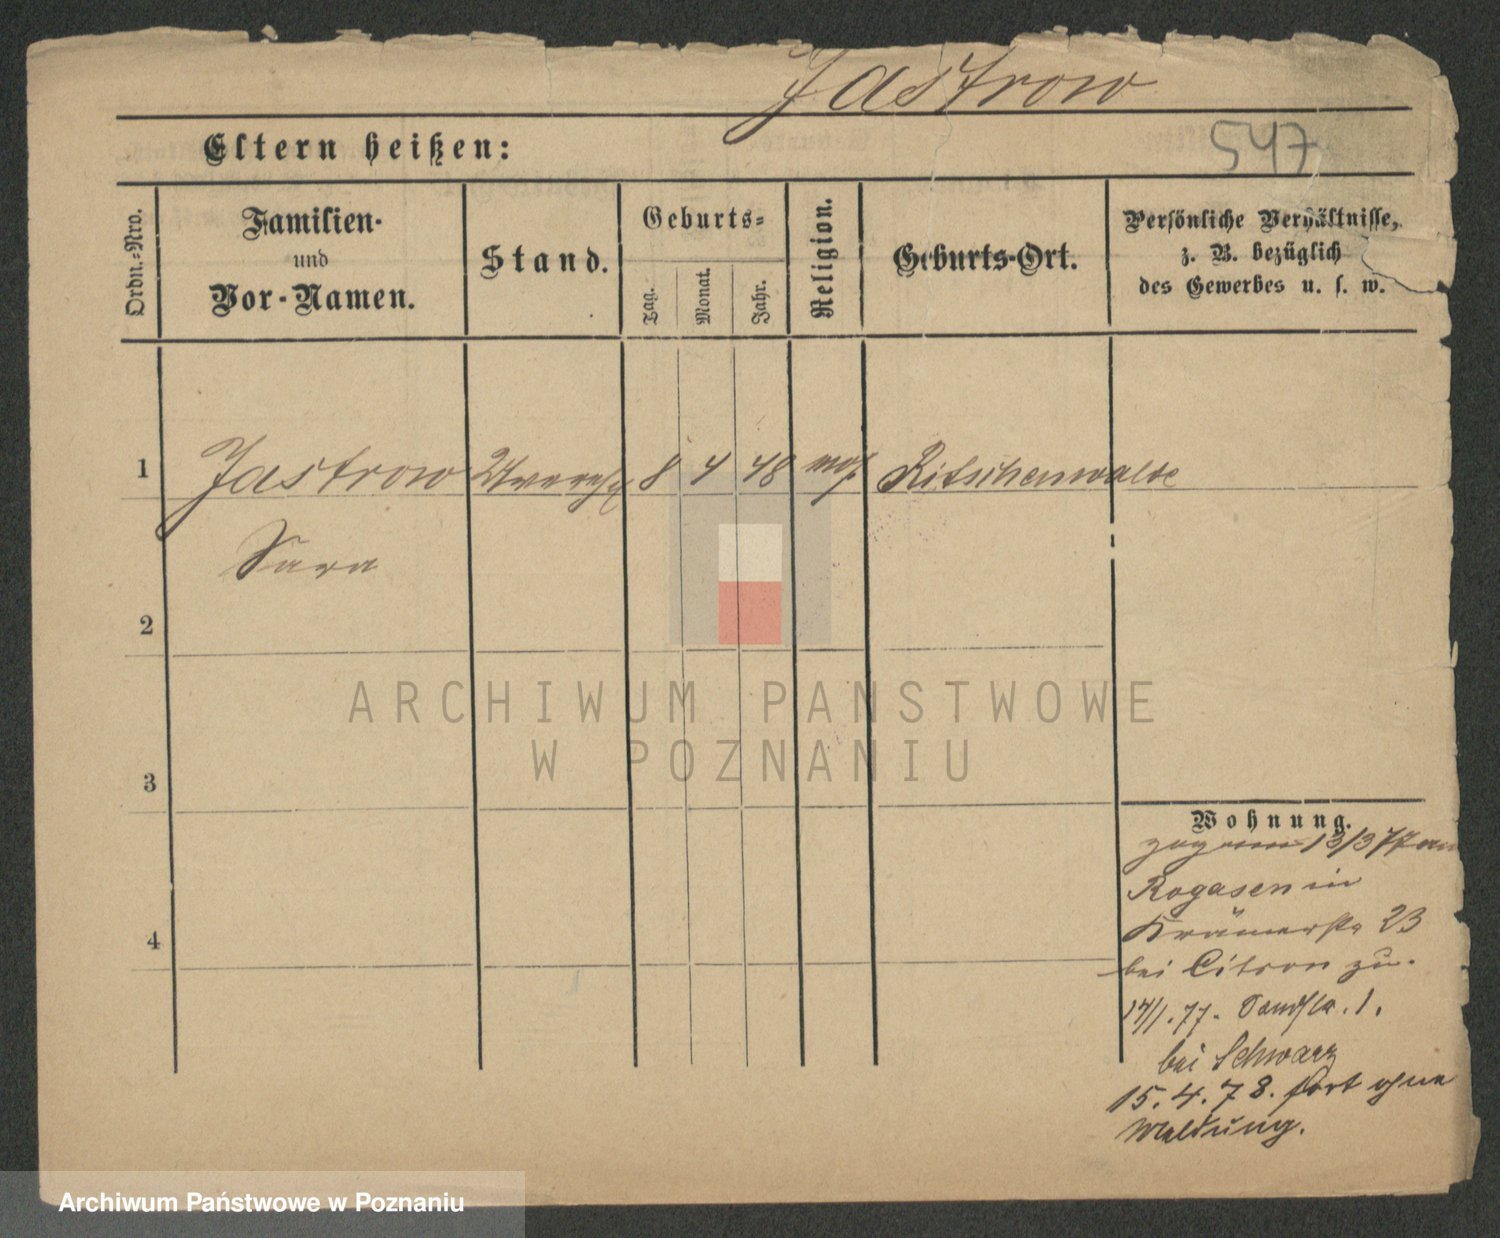 Jastrow
547
Eltern heißen:
Ordn.-Nro.
Familien-
und
Vor-Namen.
Stand.
Geburts-
Tag.
Monat.
Jahr.
Religion.
Geburts-Ort.
Persönliche Verhältnisse,
z. B. bezüglich
des Gewerbes u. s. w.
1 Jastrow Unvereh. 8 4 48 mos. Ritschenwalde
Sara
2
3
4
Wohnung.
zog am 13/3 77 aus
Rogasen in
Krämerstr 23
bei Citron zu.
17/1. 77. Sandstr. 1.
bei Schwarz
15. 4. 78. fort ohne
Meldung.
ARCHIWUM PAŃSTWOWE
W POZNANIU
Archiwum Państwowe w Poznaniu